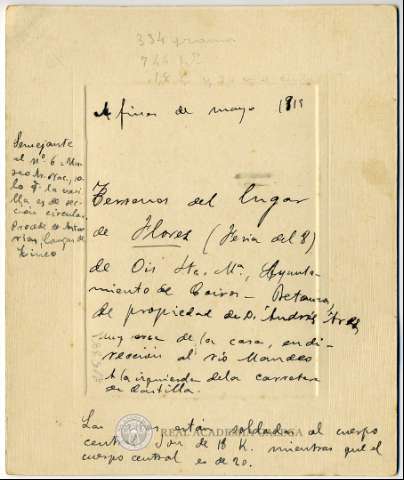 334 gramos
A fines de mayo 1919
Semejante
al nº 6 Mu-
seo Ar. Nac., so-
lo q. la vari-
lla es de sec-
ción circular.
Procede de Astu-
rias, Cangas de
Tineo
Terrenos del lugar
de Flores (Feria del 8)
de Ois Sta. Mª, Ayunta-
miento de Coirós - Betanzos,
de propiedad de D. Andrés
muy cerca de la casa, en di-
rección al río Mandeo
A la izquierda de la carretera
de Castilla.
Las están soldadas al cuerpo
central. Son de 18 K. mientras que el
cuerpo central es de 20.
REAL ACADEMIA GALEGA